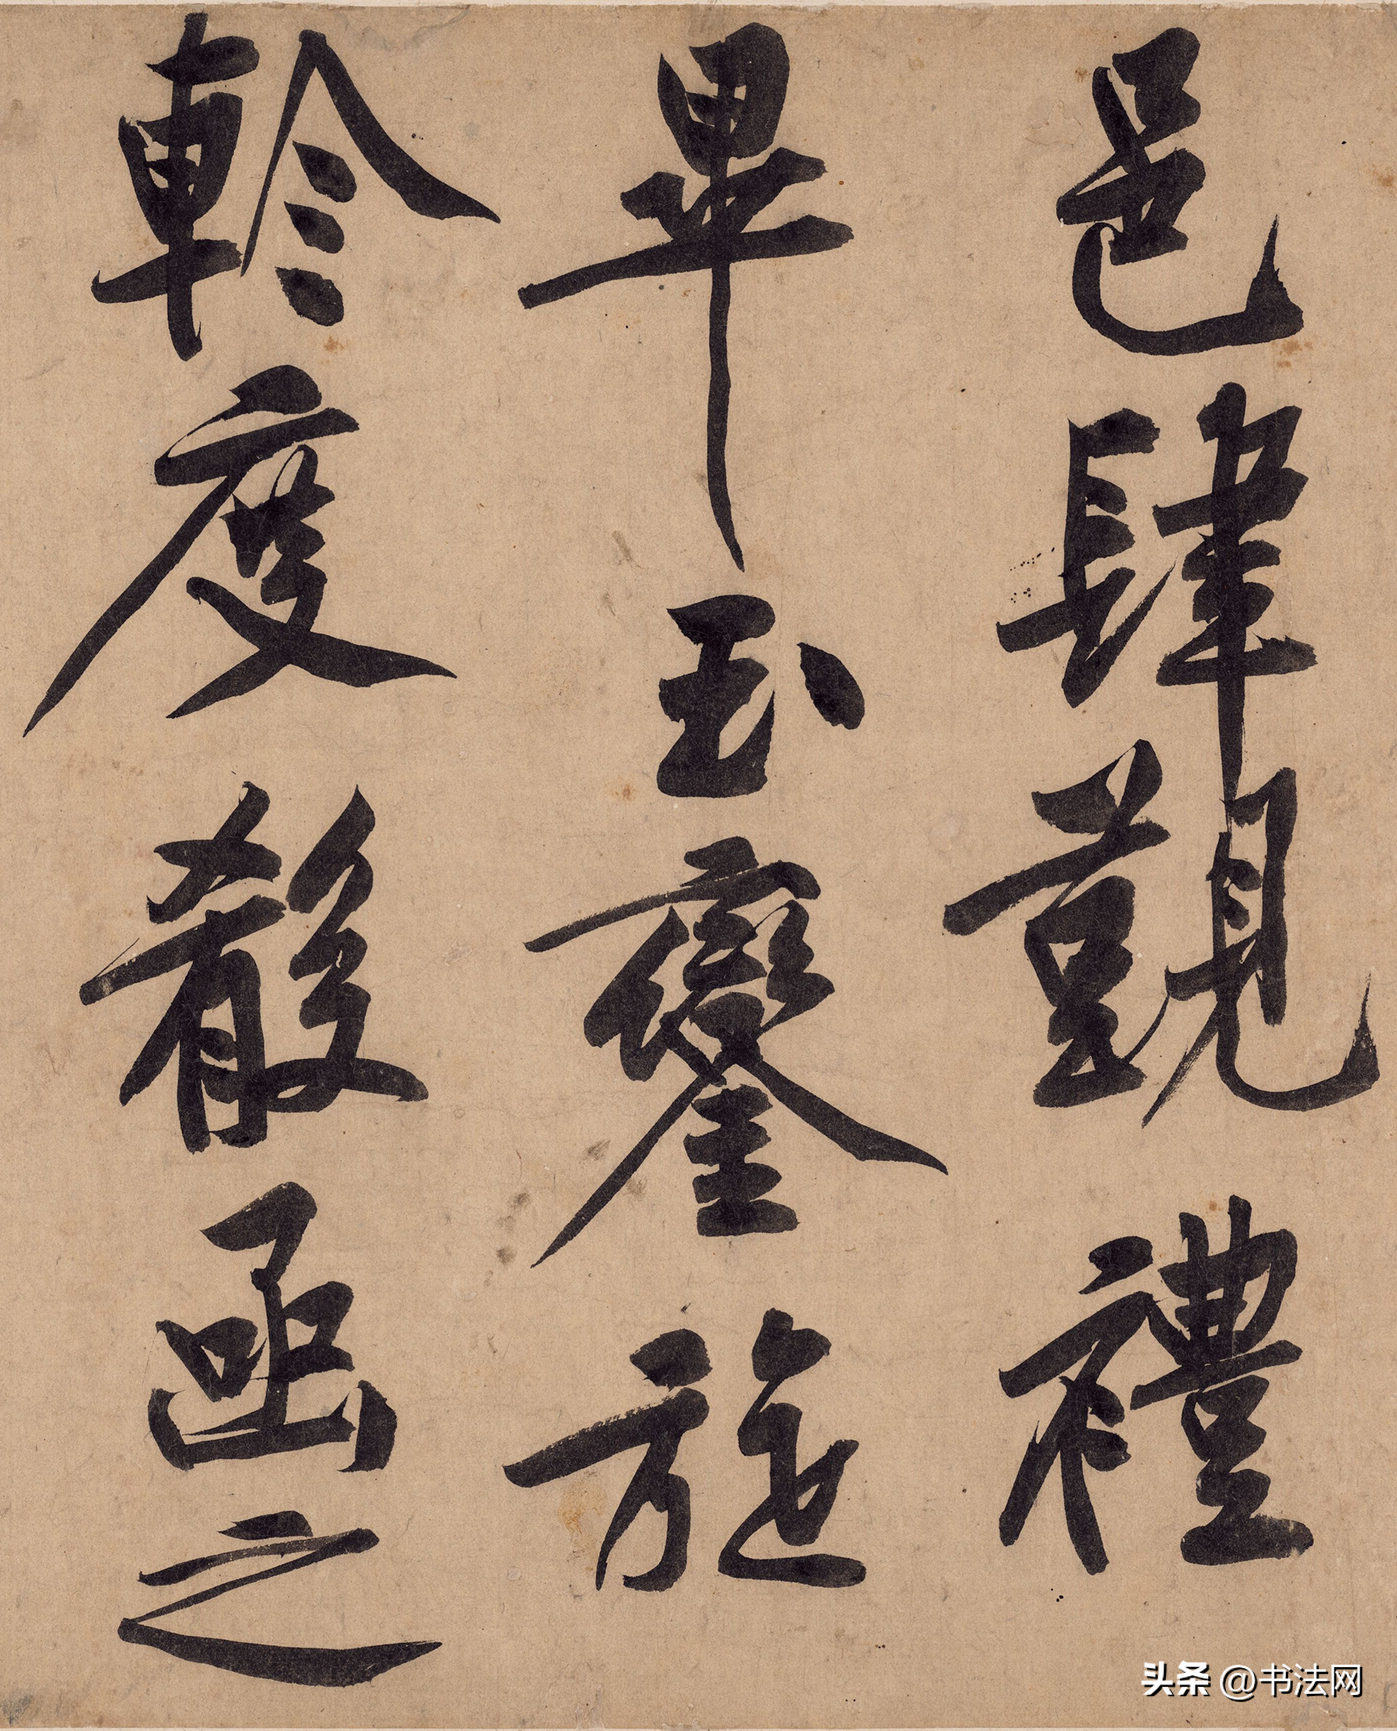 邑肆覲禮
畢玉鑾旋
軫度殽函之
头条 @书法网